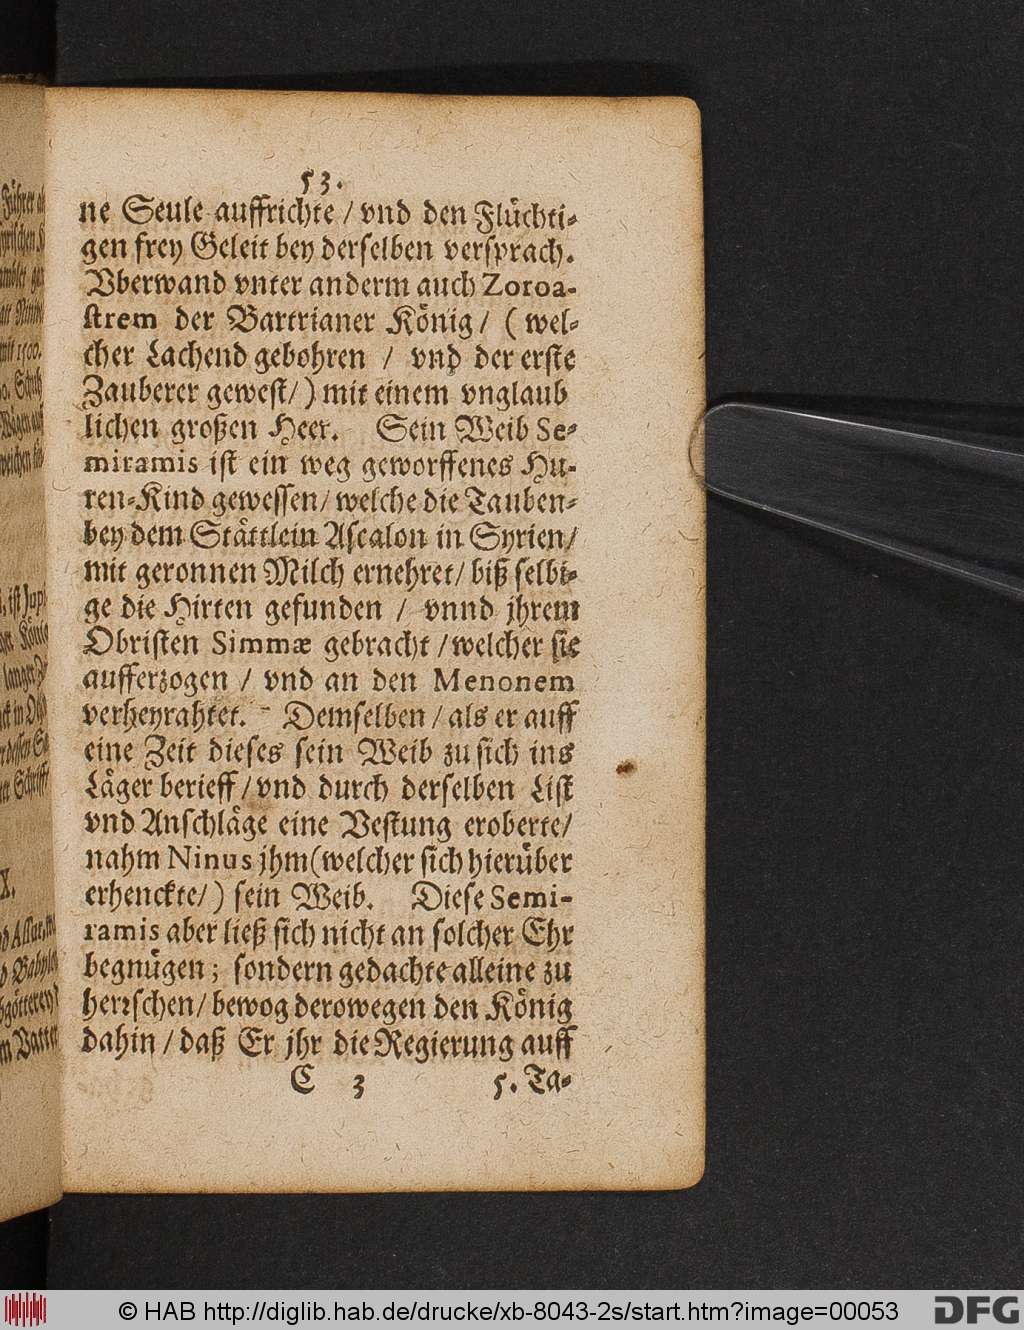 53.
ne Seule auffrichte / vnd den Flüchti-
gen frey Geleit bey derselben versprach.
Vberwand vnter anderm auch Zoroa-
strem der Bartrianer König / ( wel-
cher Lachend gebohren / vnd der erste
Zauberer gewest / ) mit einem vnglaub
lichen großen Heer. Sein Weib Se-
miramis ist ein weg geworffenes Hu-
ren-Kind gewessen / welche die Tauben-
bey dem Stättlein Ascalon in Syrien /
mit geronnen Milch ernehret / biß selbi-
ge die Hirten gefunden / vnnd jhrem
Obristen Simmæ gebracht / welcher sie
aufferzogen / vnd an den Menonem
verheyrahtet. - Demselben / als er auff
eine Zeit dieses sein Weib zu sich ins
Läger berieff / vnd durch derselben List
vnd Anschläge eine Vestung eroberte /
nahm Ninus jhm (welcher sich hierüber
erhenckte / ) sein Weib. Diese Semi-
ramis aber ließ sich nicht an solcher Ehr
begnügen ; sondern gedachte alleine zu
herrschen / bewog derowegen den König
dahin / daß Er jhr die Regierung auff
C 3 5. Ta-
© HAB http://diglib.hab.de/drucke/xb-8043-2s/start.htm?image=00053
DFG